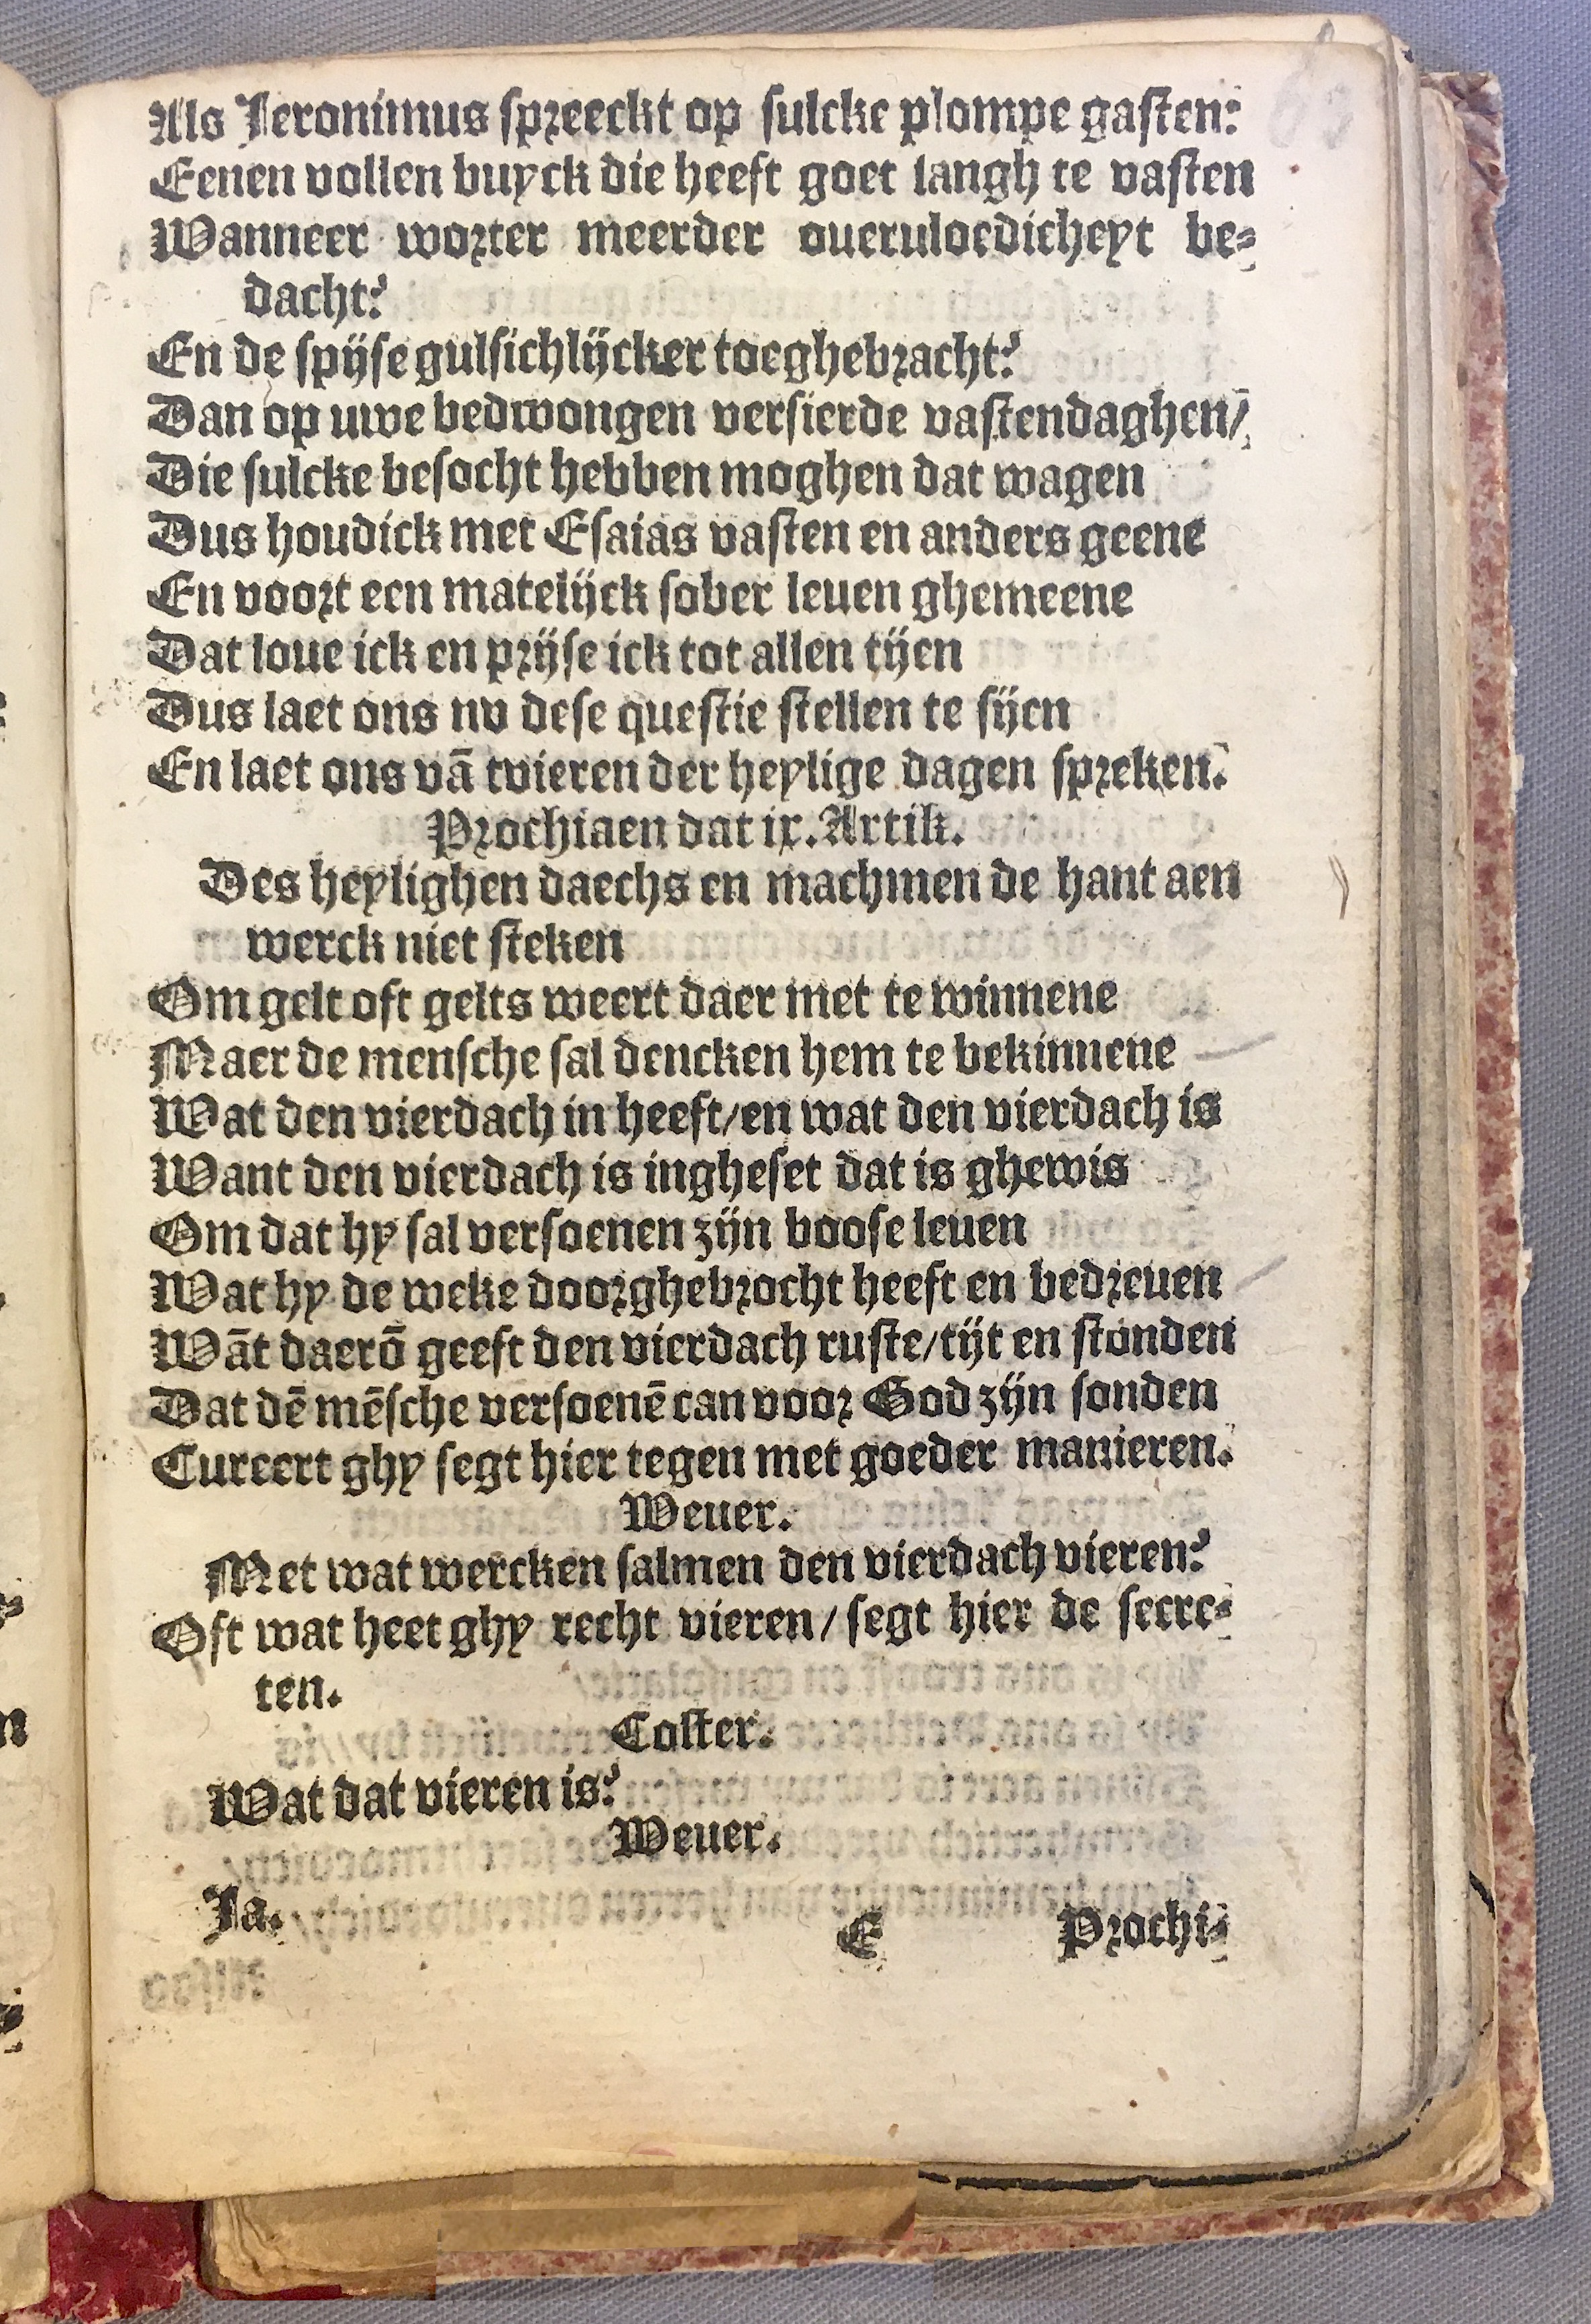 Als Jeronimus spreeckt op sulcke plompe gasten:
Eenen vollen buyck die heeft goet langh te vasten
Wanneer worter meerder oueruloedicheyt be-
dacht?
En de spijse gulsichlijcker toeghebracht?
Dan op uwe bedwongen versierde vastendaghen/
Die sulcke besocht hebben moghen dat wagen
Dus houdick met Esaias vasten en anders geene
En voort een matelijck sober leuen ghemeene
Dat loue ick en prijse ick tot allen tijen
Dus laet ons nv dese questie stellen te sijen
En laet ons vā tvieren der heylige dagen spreken.
Prochiaen dat ix. Artik.
Des heylighen daechs en machmen de hant aen
werck niet steken
Om gelt oft gelts weert daer met te winnene
Maer de mensche sal dencken hem te bekinnene
Wat den vierdach in heeft/en wat den vierdach is
Want den vierdach is ingheset dat is ghewis
Om dat hy sal versoenen zijn boose leuen
Wat hy de weke doorghebrocht heeft en bedreuen
Wāt daerō geeft den vierdach ruste/tijt en stonden
Dat dē mēsche versoenē can voor God zijn sonden
Cureert ghy segt hier tegen met goeder manieren.
Weuer.
Met wat wercken salmen den vierdach vieren?
Oft wat heet ghy recht vieren/segt hier de secre-
ten.
Coster.
Wat dat vieren is?
Weuer.
Ja.
E Prochi-